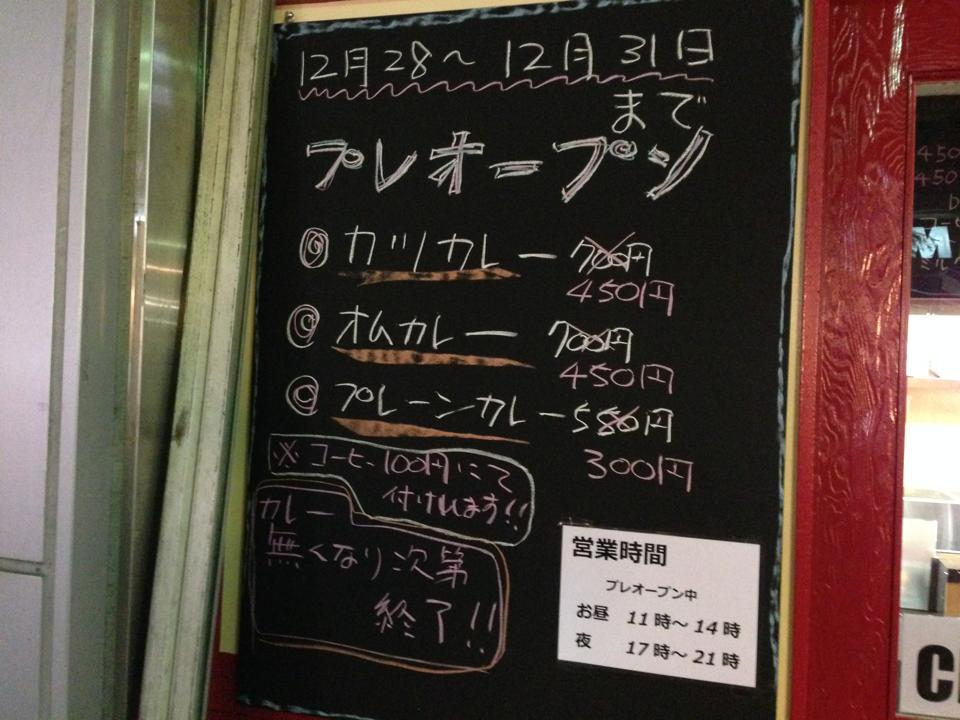 12月28〜12月31日
まで
プレオープン
◎カツカレー 700円
450円
◎オムカレー 700円
450円
◎プレーンカレー 580円
300円
※コーヒー100円にて
付けれます!!
カレー
無くなり次第
終了!!
営業時間
プレオープン中
お昼 11時〜14時
夜 17時〜21時
450
450
C